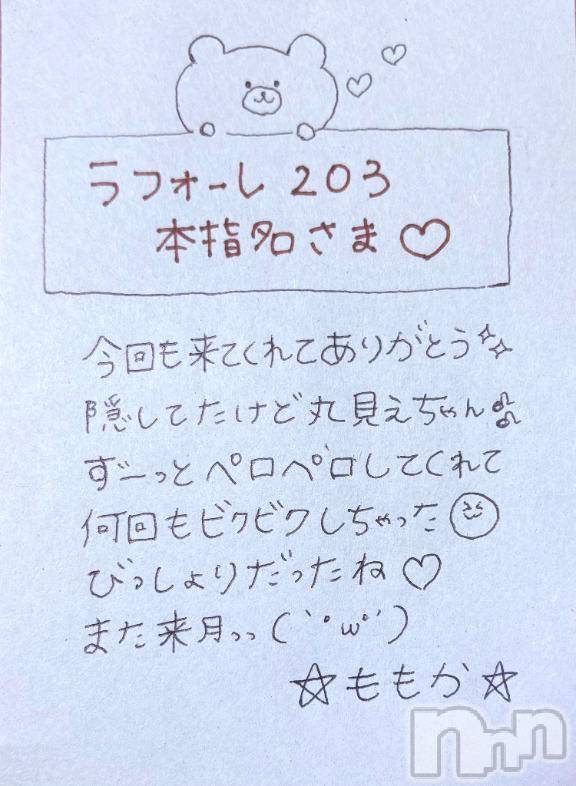 ラフォーレ 203
本指名さま♡
今回も来てくれてありがとう✨
隠してたけど丸見えちゃん♫
ずーっとペロペロしてくれて
何回もビクビクしちゃった
びっしょりだったね♡
また来月っっ(｀・ω・´)
☆ももか☆
nnn